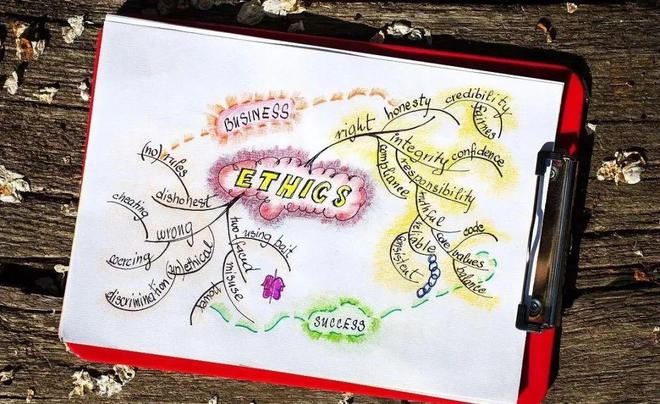 BUSINESS
right
honesty
credibility
fairness
integrity
confidence
compliance
responsibility
core values
code
balance
consistent
ETHICS
(no) rules
dishonest
cheating
wrong
coercing
(un)ethical
discrimination
two-faced
using bait
misuse
power
SUCCESS